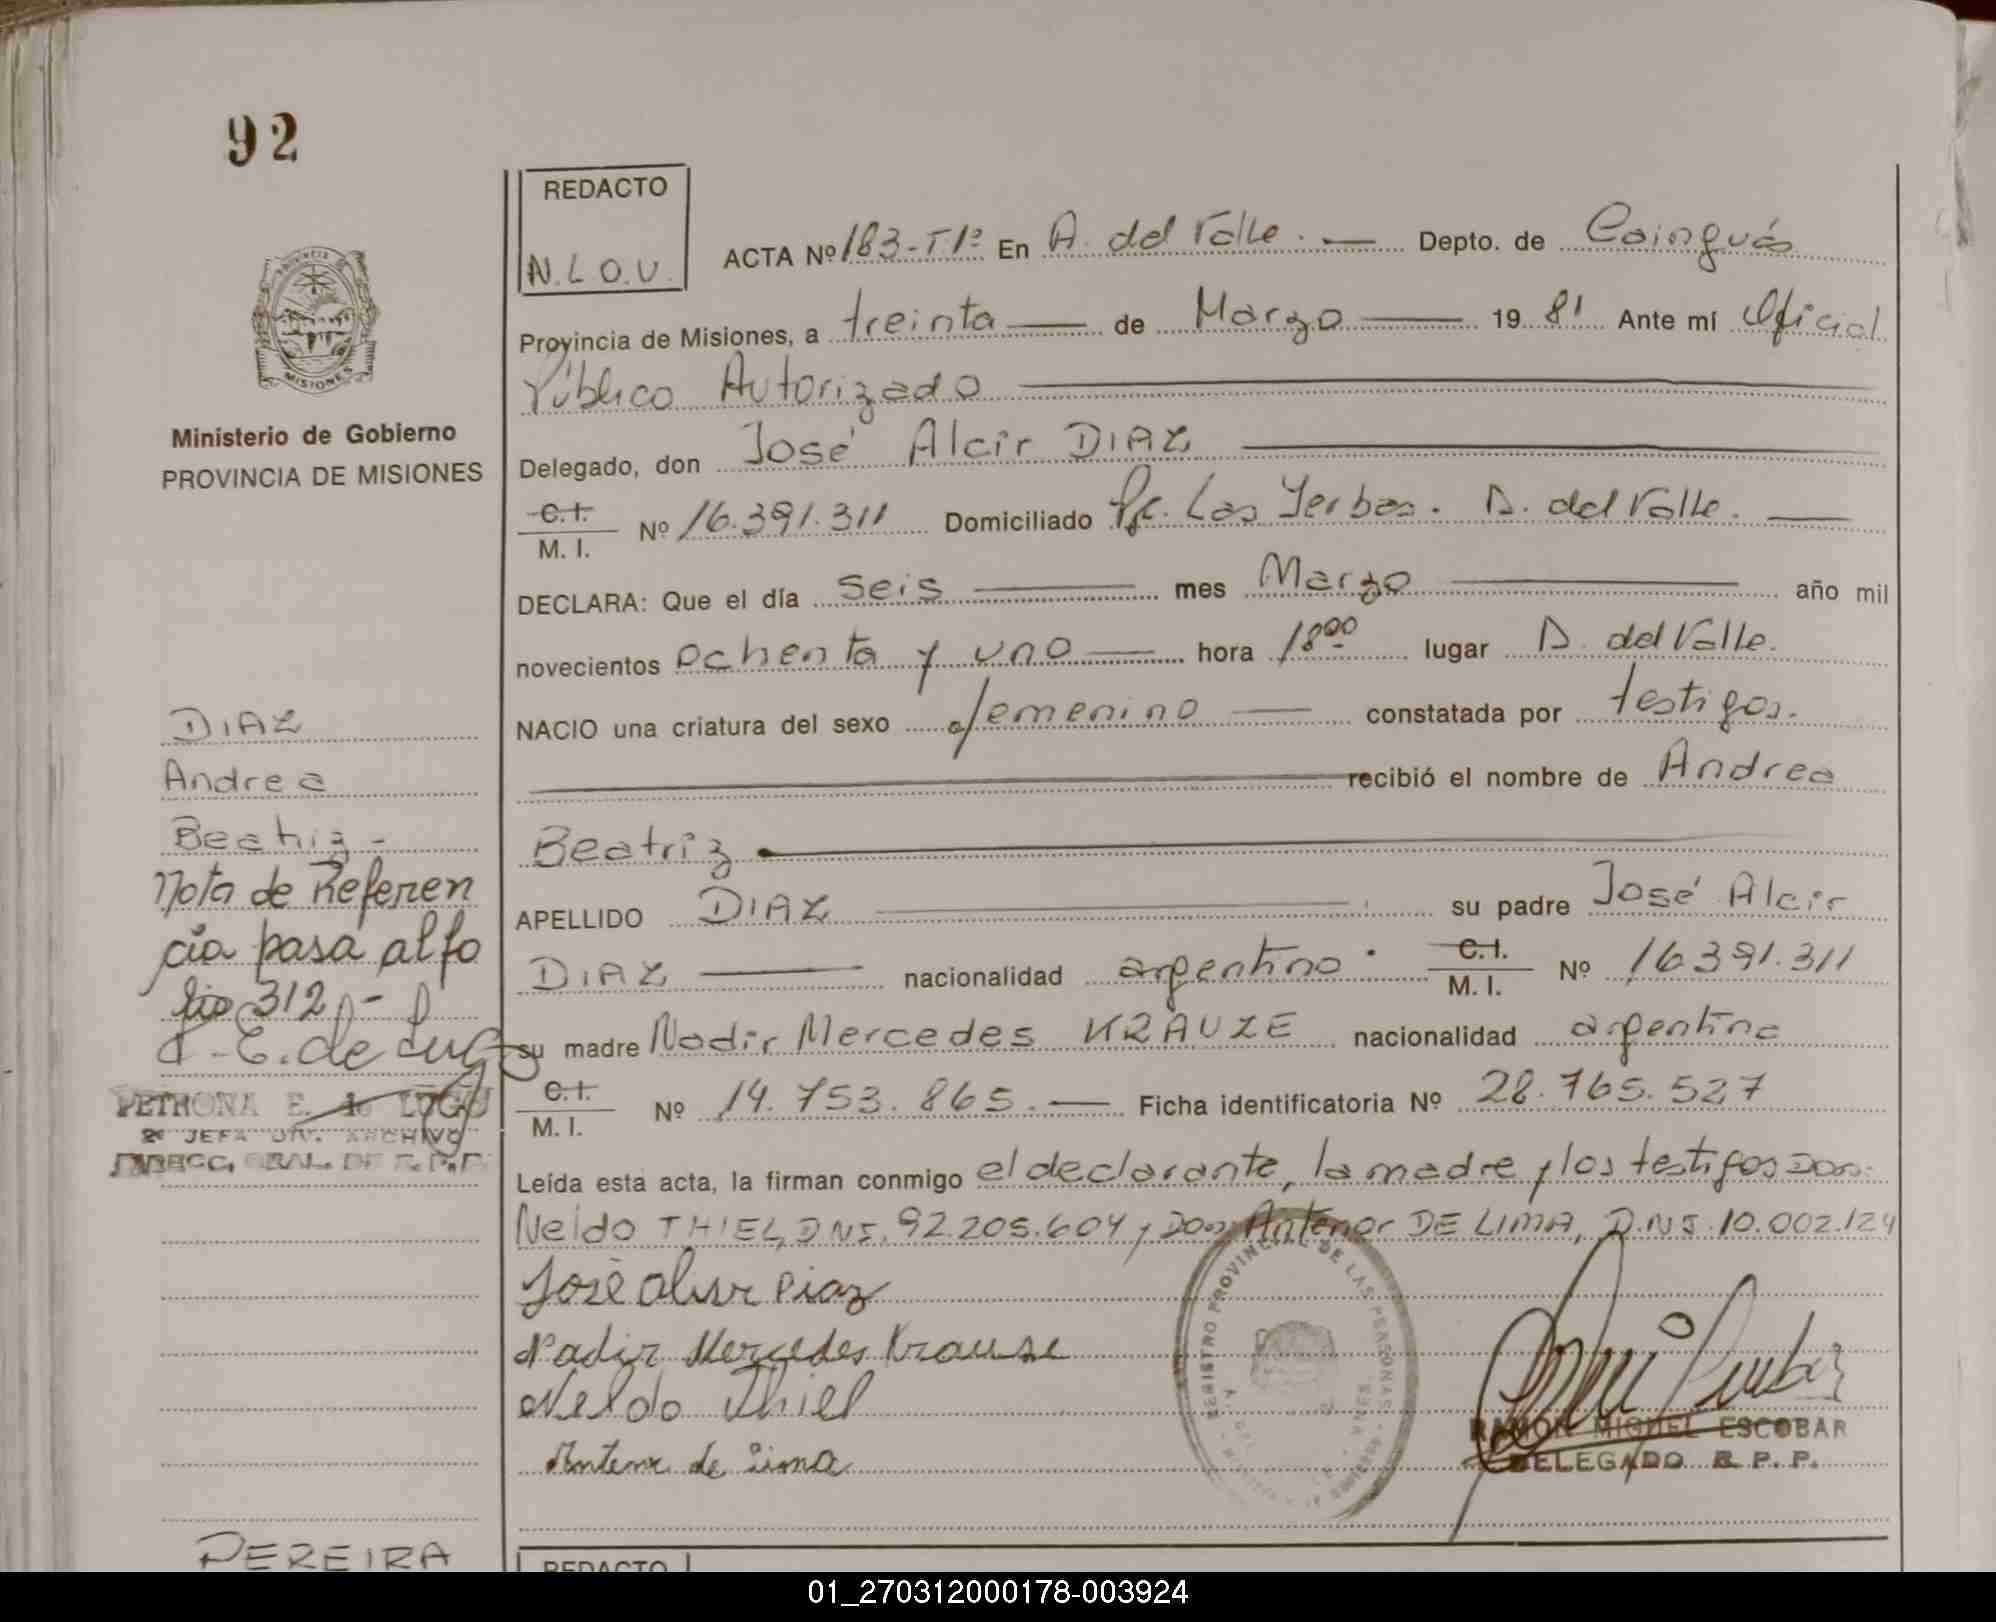 92
REDACTO
N.L.O.U.
ACTA Nº 183-T1º En A. del Valle. Depto. de Cainguás
Provincia de Misiones, a treinta de Marzo 1981 Ante mí Oficial
Público Autorizado
Delegado, don José Alcir DIAZ
C.I.
M. I. Nº 16.391.311 Domiciliado Pje. Las Yerbas. A. del Valle.
DECLARA: Que el día seis mes Marzo año mil
novecientos ochenta y uno hora 18⁰⁰ lugar A. del Valle.
NACIO una criatura del sexo femenino constatada por testigos.
recibió el nombre de Andrea
Beatriz
APELLIDO DIAZ su padre José Alcir
DIAZ nacionalidad argentino C.I. M. I. Nº 16.391.311
su madre Nadir Mercedes KRAUZE nacionalidad argentina
C.I.
M. I. Nº 14.753.865. Ficha identificatoria Nº 28.765.527
Leída esta acta, la firman conmigo el declarante, la madre y los testigos Don:
Neldo THIEL, DNI. 92.205.604 y Don: Antenor DE LIMA, D.N.I. 10.002.124
José Alsir Diaz
Nadir Mercedes Krause
Neldo Thiel
Antenor de Lima
REGISTRO PROVINCIAL DE LAS PERSONAS
RAMON MIGUEL ESCOBAR
DELEGADO R. P. P.
MISIONES
Ministerio de Gobierno
PROVINCIA DE MISIONES
DIAZ
Andrea
Beatriz -
Nota de Referen
cia pasa al fo
lio 312.-
P. E. de Lugo
PETRONA E. de LUGO
2ª JEFA DIV. ARCHIVO
DIRECC. GRAL. DE R.P.P.
PEREIRA
REDACTO
01_270312000178-003924